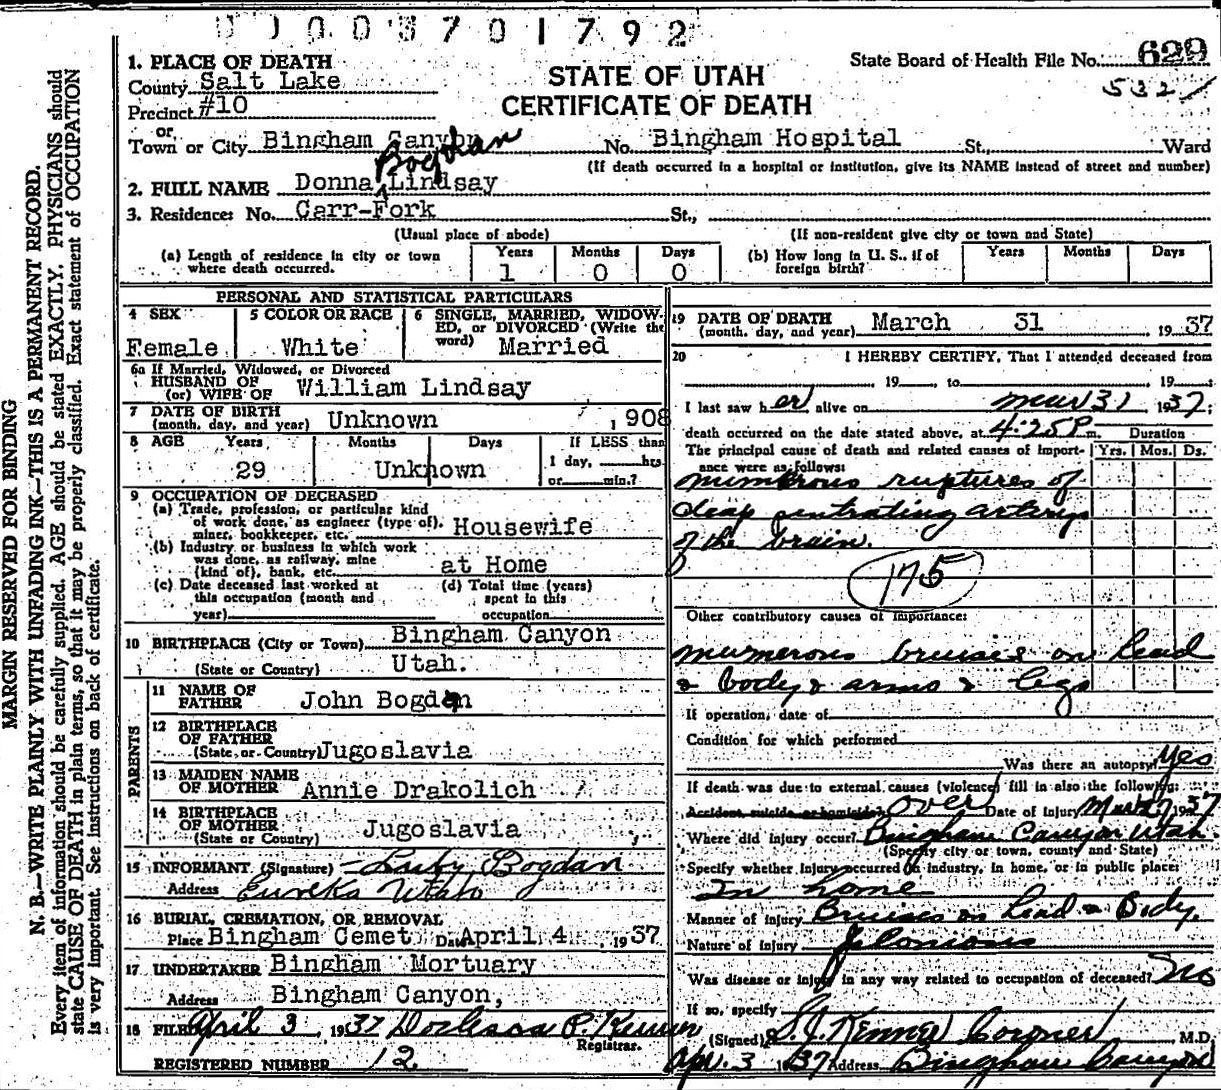 0 0 0 3 7 0 1 7 9 2
1. PLACE OF DEATH
County Salt Lake
Precinct #10
STATE OF UTAH
CERTIFICATE OF DEATH
State Board of Health File No. 629
532
or
Town or City Bingham Canyon No. Bingham Hospital St., Ward
(If death occurred in a hospital or institution, give its NAME instead of street and number)
Bogdan
2. FULL NAME Donna Lindsay
3. Residence: No. Carr-Fork St.,
(Usual place of abode) (If non-resident give city or town and State)
(a) Length of residence in city or town where death occurred. Years 1 Months 0 Days 0
(b) How long in U. S., if of foreign birth? Years Months Days
PERSONAL AND STATISTICAL PARTICULARS
4 SEX Female
5 COLOR OR RACE White
6 SINGLE, MARRIED, WIDOWED, or DIVORCED (Write the word) Married
6a If Married, Widowed, or Divorced
HUSBAND OF
(or) WIFE OF William Lindsay
7 DATE OF BIRTH
(month, day, and year) Unknown 1908
8 AGE Years Months Days If LESS than
29 Unknown 1 day, hrs.
or min.?
9 OCCUPATION OF DECEASED
(a) Trade, profession, or particular kind
of work done, as engineer (type of),
miner, bookkeeper, etc. Housewife
(b) Industry or business in which work
was done, as railway, mine
(kind of), bank, etc. at Home
(c) Date deceased last worked at
this occupation (month and
year)
(d) Total time (years)
spent in this
occupation
10 BIRTHPLACE (City or Town) Bingham Canyon
(State or Country) Utah.
PARENTS
11 NAME OF
FATHER John Bogdan
12 BIRTHPLACE
OF FATHER
(State or Country) Jugoslavia
13 MAIDEN NAME
OF MOTHER Annie Drakolich
14 BIRTHPLACE
OF MOTHER
(State or Country) Jugoslavia
15 INFORMANT (Signature) Luby Bogdan
Address Eureka Utah
16 BURIAL, CREMATION, OR REMOVAL
Place Bingham Cemet Date April 4, 1937
17 UNDERTAKER Bingham Mortuary
Address Bingham Canyon,
18 FILED April 3, 1937
Registrar.
REGISTERED NUMBER 12
19 DATE OF DEATH
(month, day, and year) March 31 1937
20 I HEREBY CERTIFY, That I attended deceased from
19 to 19
I last saw her alive on Mar 31 1937;
death occurred on the date stated above, at 4:25 P m. Duration
The principal cause of death and related causes of importance were as follows: Yrs. Mos. Ds.
numerous ruptures of
deap pentrating arterys
of the brain.
175
Other contributory causes of importance:
numerous bruises on head
& body & arms & legs
If operation, date of
Condition for which performed
Was there an autopsy? Yes
If death was due to external causes (violence) fill in also the following:
Accident, suicide or homicide? over Date of injury Mar 27 1937
Where did injury occur? Bingham Canyon Utah.
(Specify city or town, county and State)
Specify whether injury occurred in industry, in home, or in public place:
In home
Manner of injury Bruises on head & Body.
Nature of injury Felonious
Was disease or injury in any way related to occupation of deceased? No
If so, specify
(Signed) Coroner M.D.
Apr. 3 1937 Address Bingham Canyon
MARGIN RESERVED FOR BINDING
N. B.—WRITE PLAINLY WITH UNFADING INK—THIS IS A PERMANENT RECORD.
Every item of information should be carefully supplied. AGE should be stated EXACTLY. PHYSICIANS should
state CAUSE OF DEATH in plain terms, so that it may be properly classified. Exact statement of OCCUPATION
is very important. See instructions on back of certificate.